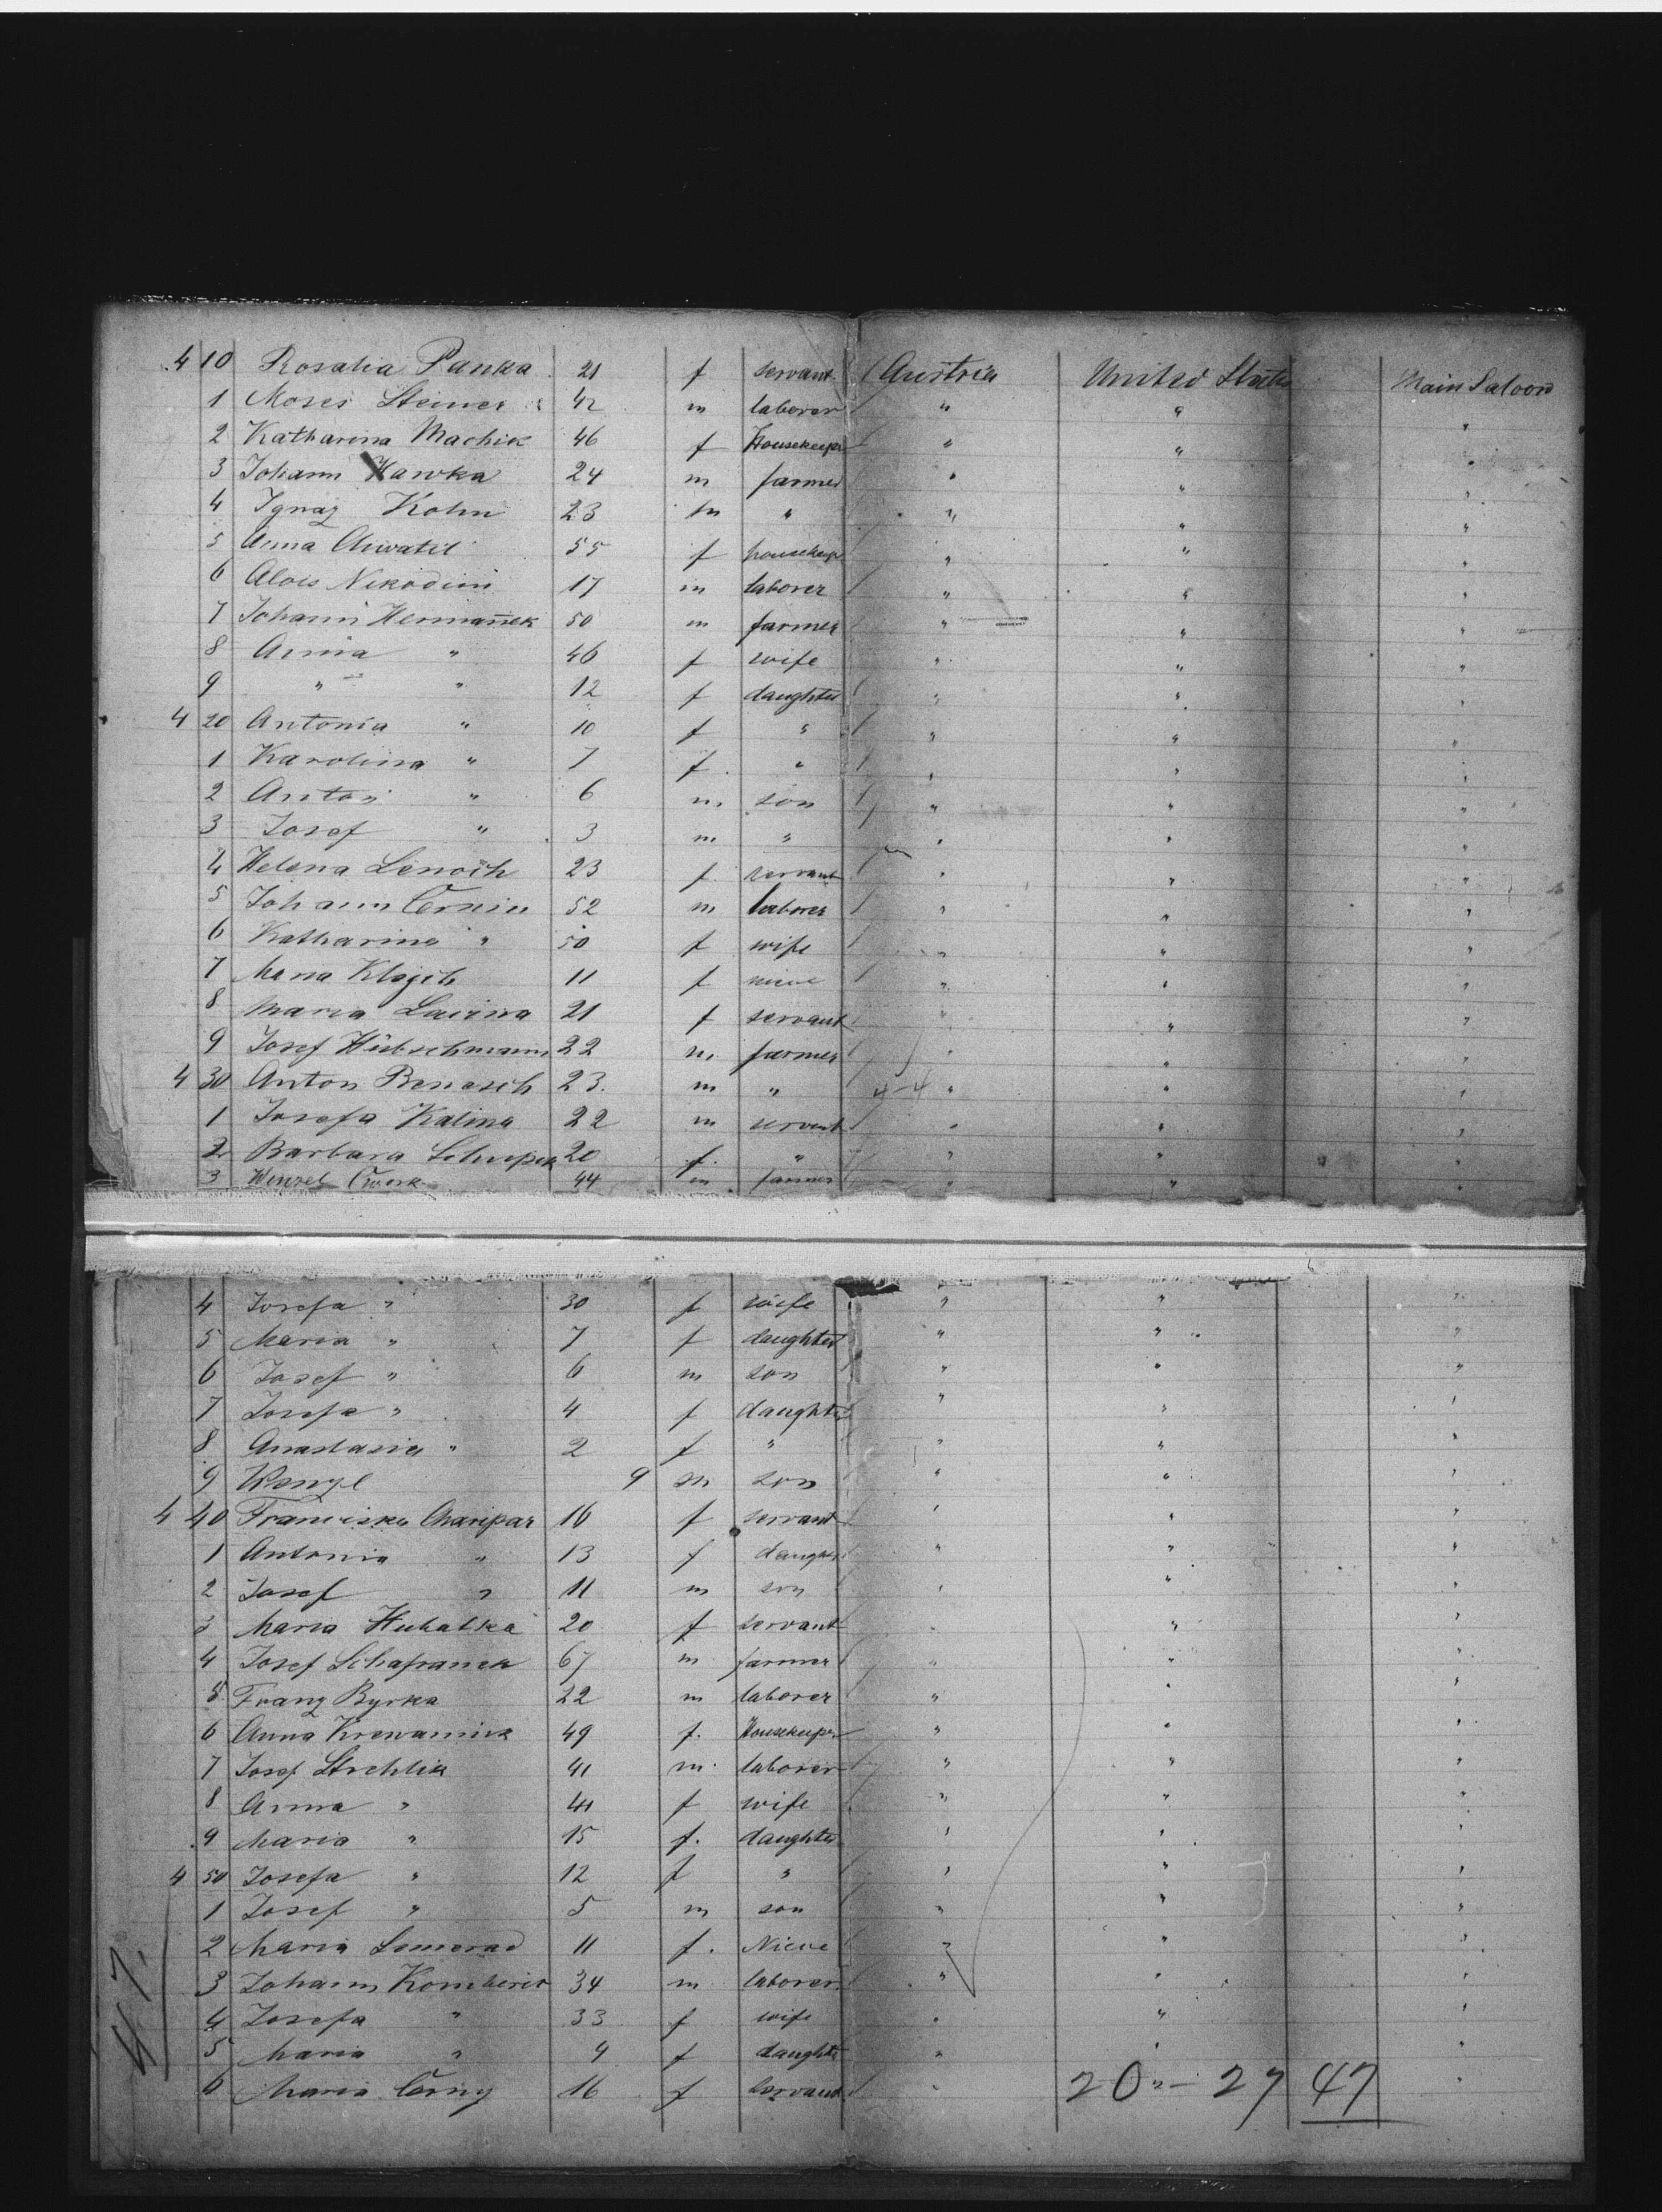 4 10 Rosalia Panka 21 f servant Austria United States Main Saloon
1 Moses Steiner 42 m laborer " " "
2 Katharina Machik 46 f Housekeeper " " "
3 Johann Hawka 24 m farmer " " "
4 Ignaz Kohn 23 m " " " "
5 Anna Chwatil 55 f housekeep " " "
6 Alois Nikodim 17 m laborer " " "
7 Johann Hermanek 50 m farmer " " "
8 Anna " 46 f wife " " "
9 " " 12 f daughter " " "
4 20 Antonia " 10 f " " " "
1 Karolina " 7 f " " " "
2 Anton " 6 m son " " "
3 Josef " 3 m " " " "
4 Helena Lenoch 23 f servant " " "
5 Johann Černin 52 m laborer " " "
6 Katharina " 50 f wife " " "
7 Maria 11 f niece " " "
8 Maria 21 f servant " " "
9 Josef Hübschmann 22 m farmer " " "
4 30 Anton Benesch 23. m " 4-4 " " "
1 Josefa Kalina 22 m servant " " "
2 Barbara 20 f. " " " "
3 Wenzel 44 m farmer " " "
4 Josefa " 30 f wife " " "
5 Maria " 7 f daughter " " "
6 Josef " 6 m son " " "
7 Josefa " 4 f daughter " " "
8 Anastasia " 2 f " " " "
9 Wenzl 9 m son " " "
4 40 Franziska Charipar 16 f servant " " "
1 Antonia " 13 f daughter " " "
2 Josef " 11 m son " " "
3 Maria Hubatka 20 f servant " " "
4 Josef Schafranek 67 m farmer " " "
5 Franz Byrka 22 m laborer " " "
6 Anna 49 f. Housekeeper " " "
7 Josef Strehlik 41 m. laborer " " "
8 Anna " 41 f wife " " "
9 Maria " 15 f. daughter " " "
4 50 Josefa " 12 f " " " "
1 Josef " 5 m son " " "
2 Maria Semerad 11 f. Niece " " "
3 Johann 34 m laborer " " "
4 Josefa " 33 f wife " " "
5 Maria " 9 f daughter " " "
6 Maria Černy 16 f servant " 20 - 27 47 "
47.